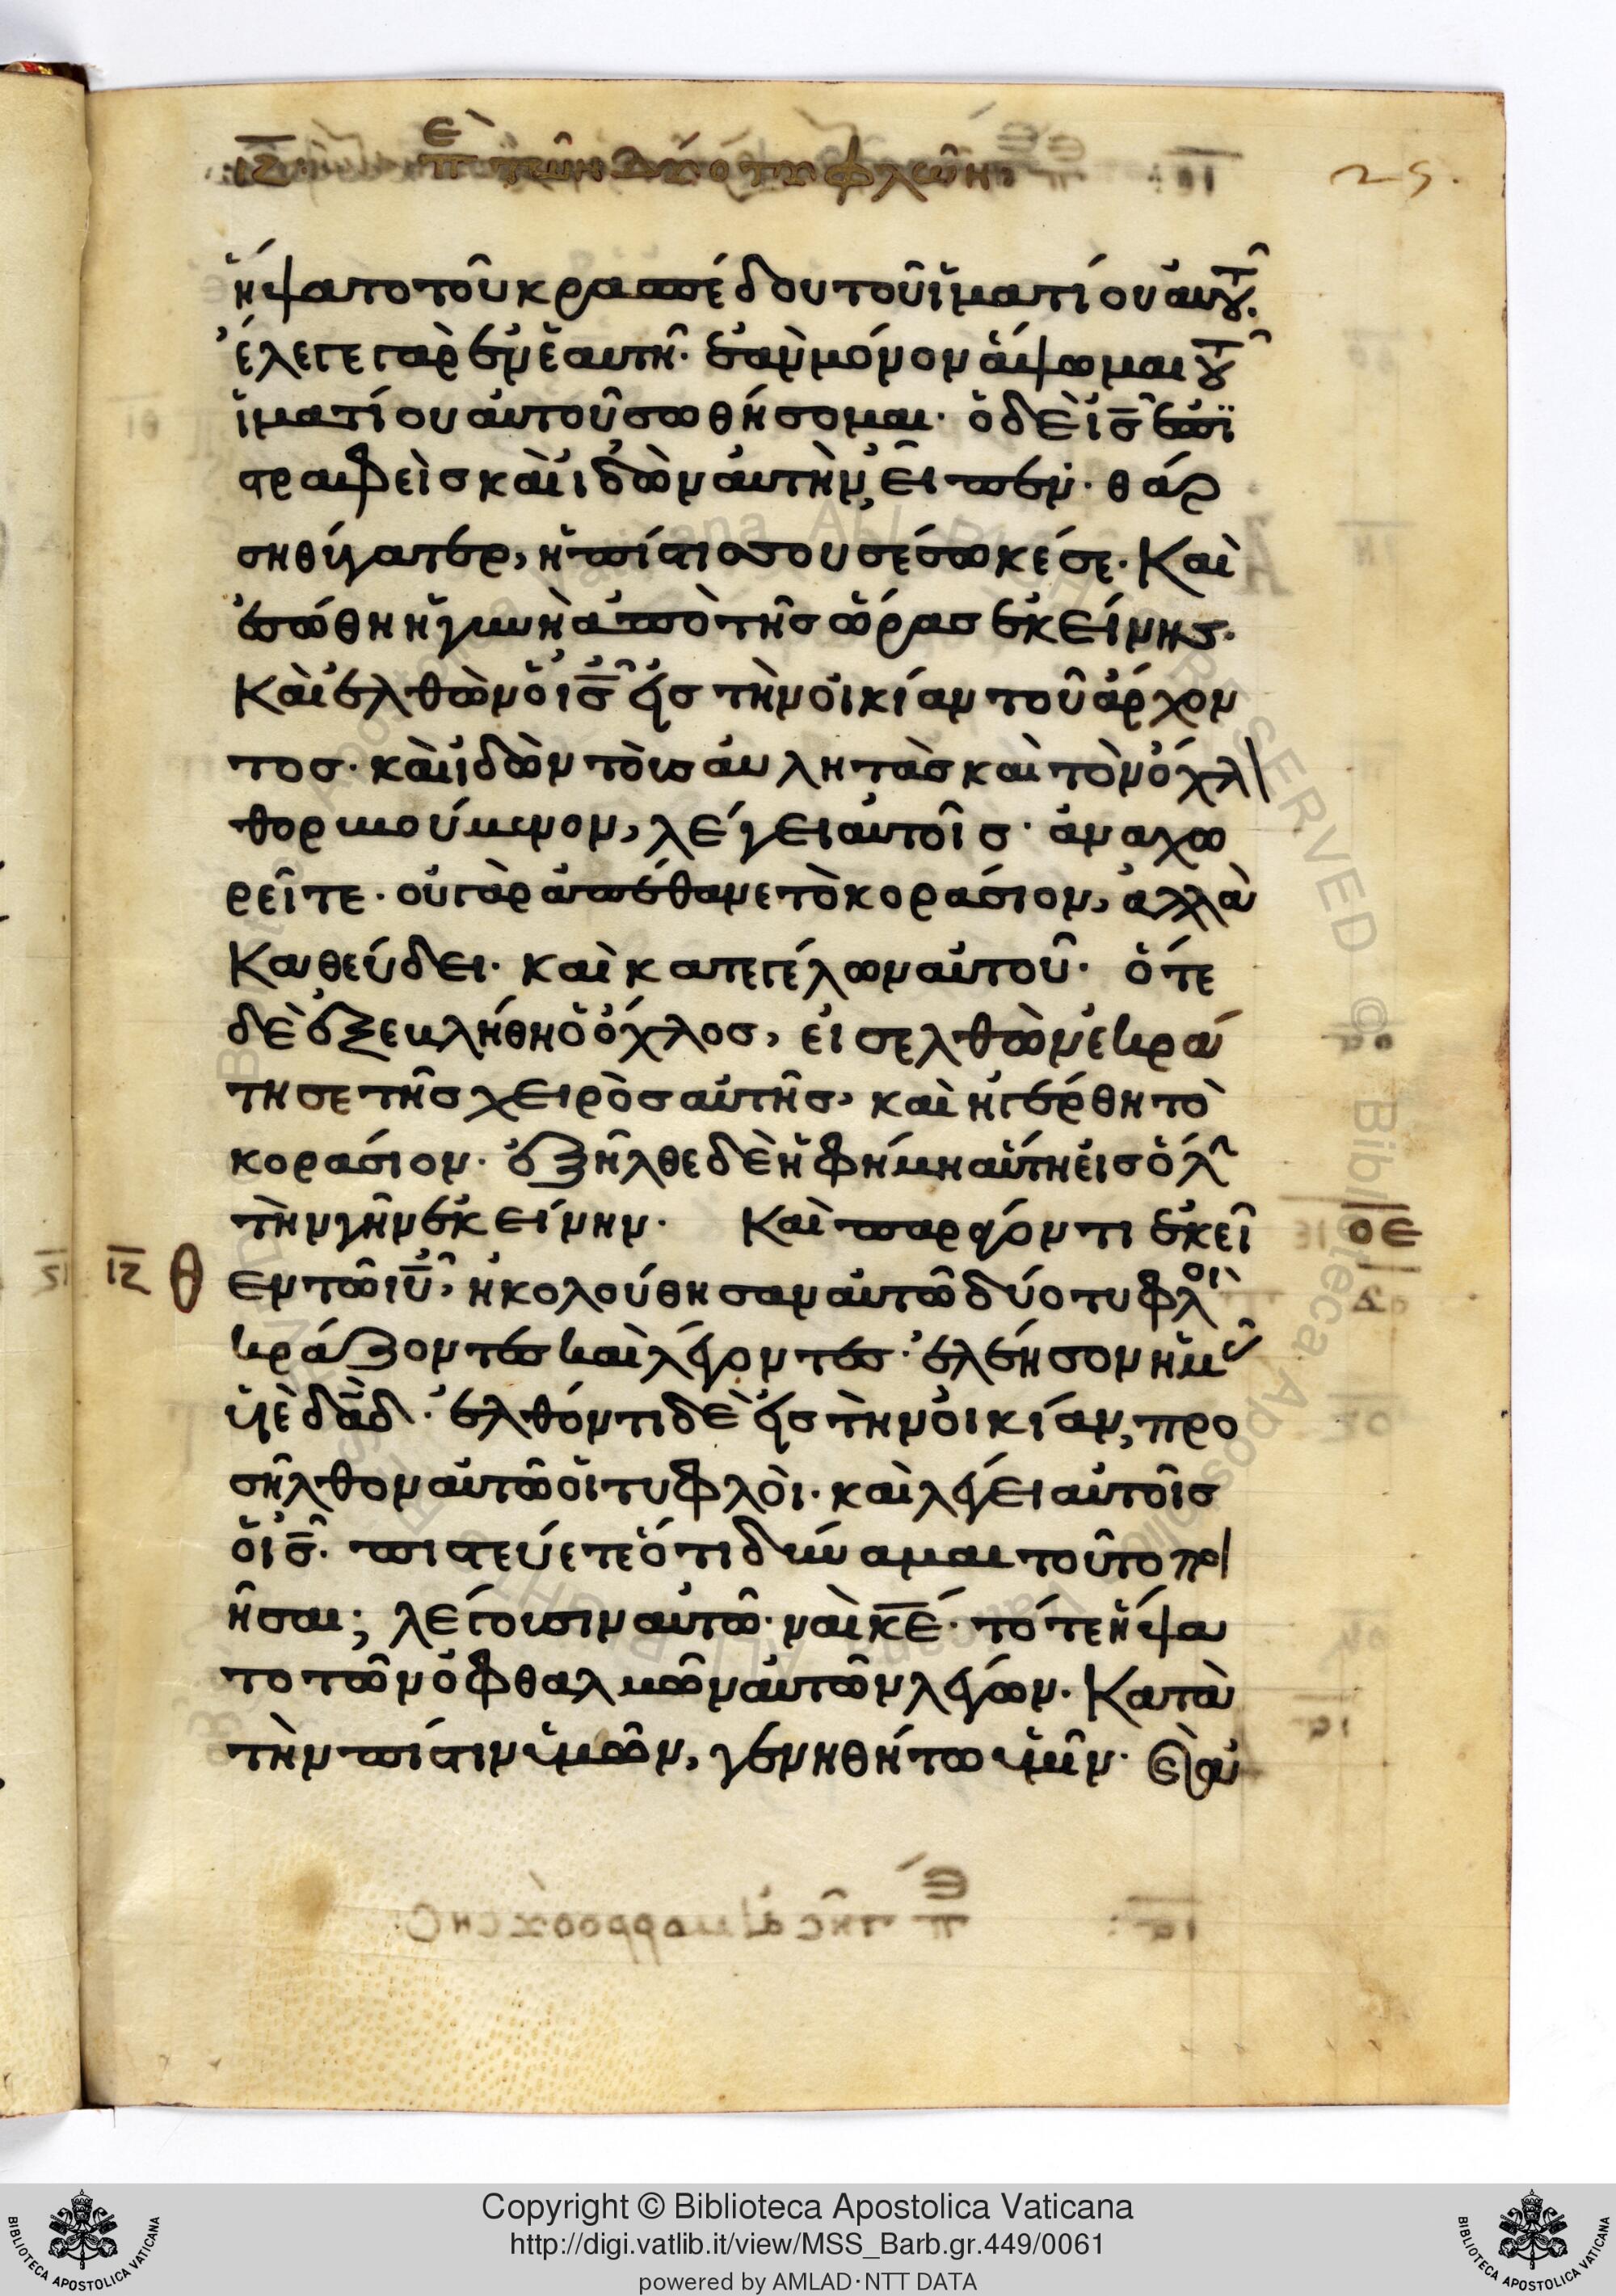 ιζ περὶ τῶν δύο τυφλῶν
25.
ἥψατο τοῦ κρασπέδου τοῦ ἱματίου αὐτοῦ.
ἔλεγε γὰρ ἐν ἑαυτῆ· ἐὰν μόνον ἅψωμαι τοῦ
ἱματίου αὐτοῦ σωθήσομαι· ὁ δὲ ι̅ς̅ ἐπι
στραφεὶς καὶ ἰδὼν αὐτὴν, εἶπεν· θάρ
ση θύγατερ, ἡ πίστις σου σέσωκέ σε. Καὶ
ἐσώθη ἡ γυνὴ ἀπὸ τῆς ὥρας ἐκείνης.
Καὶ ἐλθὼν ὁ ι̅ς̅ εἰς τὴν οἰκίαν τοῦ ἄρχον
τος· καὶ ἰδὼν τοὺς αὐλητὰς καὶ τὸν ὄχλ
θορυβούμενον, λέγει αὐτοῖς· ἀναχω
ρεῖτε· οὐ γὰρ ἀπέθανε τὸ κοράσιον, ἀλλὰ
Καθεύδει· καὶ κατεγέλων αὐτοῦ· ὅτε
δὲ ἐξεβλήθη ὁ ὄχλος, εἰσελθὼν ἐκρά
τησε τῆς χειρὸς αὐτῆς, καὶ ἠγέρθη τὸ
κοράσιον· ἐξῆλθε δὲ ἡ φήμη αὕτη εἰς ὅλ
τὴν γῆν ἐκείνην. Καὶ παράγοντι ἐκεῖ
οε
ιζ θ
εν τῶ ι̅υ̅, ἠκολούθησαν αὐτῶ δύο τυφλοὶ
κράζοντες καὶ λέγοντες· ἐλέησον ἡμ
υἱὲ δ̅α̅δ̅. ἐλθόντι δὲ εἰς τὴν οἰκίαν, προ
σῆλθον αὐτῶ οἱ τυφλοὶ· καὶ λέγει αὐτοῖς
ὁ ι̅ς̅. πιστεύετε ὅτι δύναμαι τοῦτο ποι
ῆσαι; λέγουσιν αὐτῶ· ναὶ κ̅ε̅. τότε ἥψα
το τῶν ὀφθαλμῶν αὐτῶν λέγων. Κατὰ
τὴν πίστιν ὑμῶν, γενηθήτω ὑμῖν. Καὶ ἀ
Copyright © Biblioteca Apostolica Vaticana
http://digi.vatlib.it/view/MSS_Barb.gr.449/0061
powered by AMLAD·NTT DATA
BIBLIOTECA APOSTOLICA VATICANA
BIBLIOTECA APOSTOLICA VATICANA